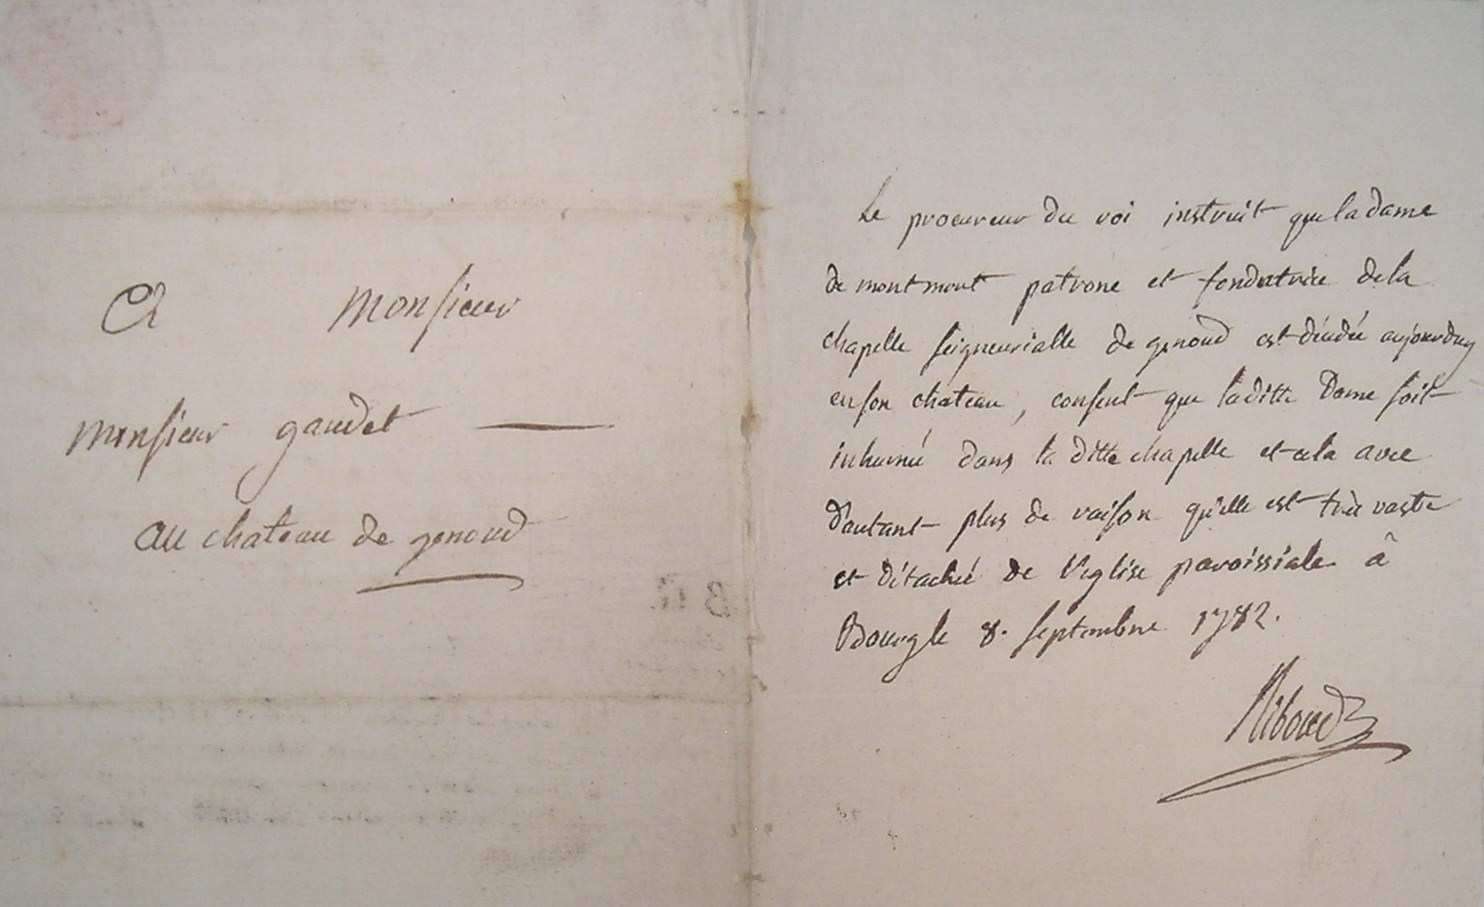 A Monsieur
Monsieur gaudet
au chateau de genoud
Le procureur du roi instruit que la dame
de montmort patrone et fondatrice de la
chapelle seigneurialle de genoud est décédée aujourduy
en son chateau, consent que laditte Dame soit
inhumé dans la ditte chapelle et cela avec
d'autant plus de raison qu'elle est très vaste
et détaché de l'eglise paroissiale à
Bourg le 8. septembre 1782.
Riboud